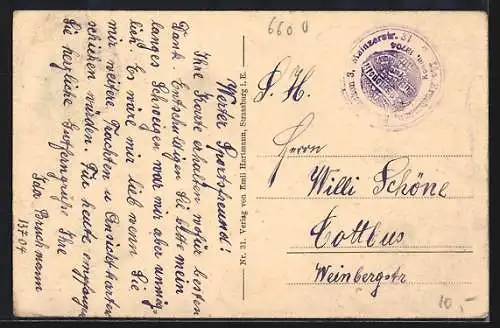 660 U
Werter Sportsfreund!
Ihre Karte erhalten wofür besten
Dank. Entschuldigen Sie bitte mein
langes Schweigen war mir aber unmög-
lich. Es wäre mir lieb wenn Sie
mir weitere Trachten u Ansichtskarten
schicken würden. Für heute empfangen
Sie herzliche Gutferngrüße Ihre
Ida Bruchmann
13704
Nr. 31. Verlag von Emil Hartmann, Strassburg i. E.
Mainzerstr. 31
Herrn
Willi Schöne
Cottbus
Weinbergstr
10,-